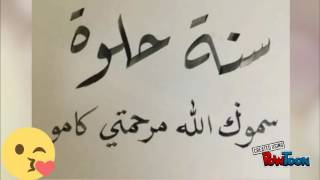 سنة حلوة
سموك الله مرحمتي كامو
CREATED USING
POWTOON